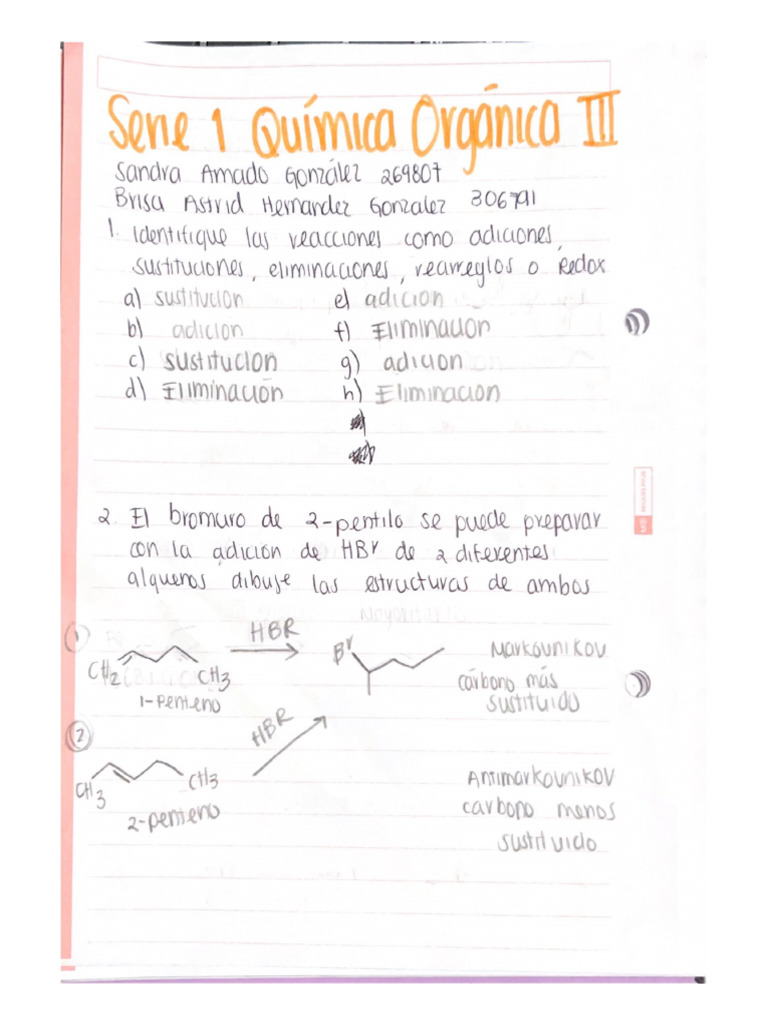 Serie 1 Química Orgánica III
Sandra Amado González 269807
Brisa Astrid Hernandez Gonzalez 306791
1. Identifique las reacciones como adiciones,
sustituciones, eliminaciones, rearreglos o Redox
a) sustitucion e) adicion
b) adicion f) Eliminacion
c) sustitucion g) adicion
d) Eliminación h) Eliminacion
2. El bromuro de 2-pentilo se puede preparar
con la adición de HBr de 2 diferentes
alquenos dibuje las estructuras de ambos
1 HBR
Br
Markounikov
CH2 CH3
carbono más
1-penteno
sustituido
2 HBR
CH3 CH3
2-penteno
Antimarkounikov
carbono menos
sustituido